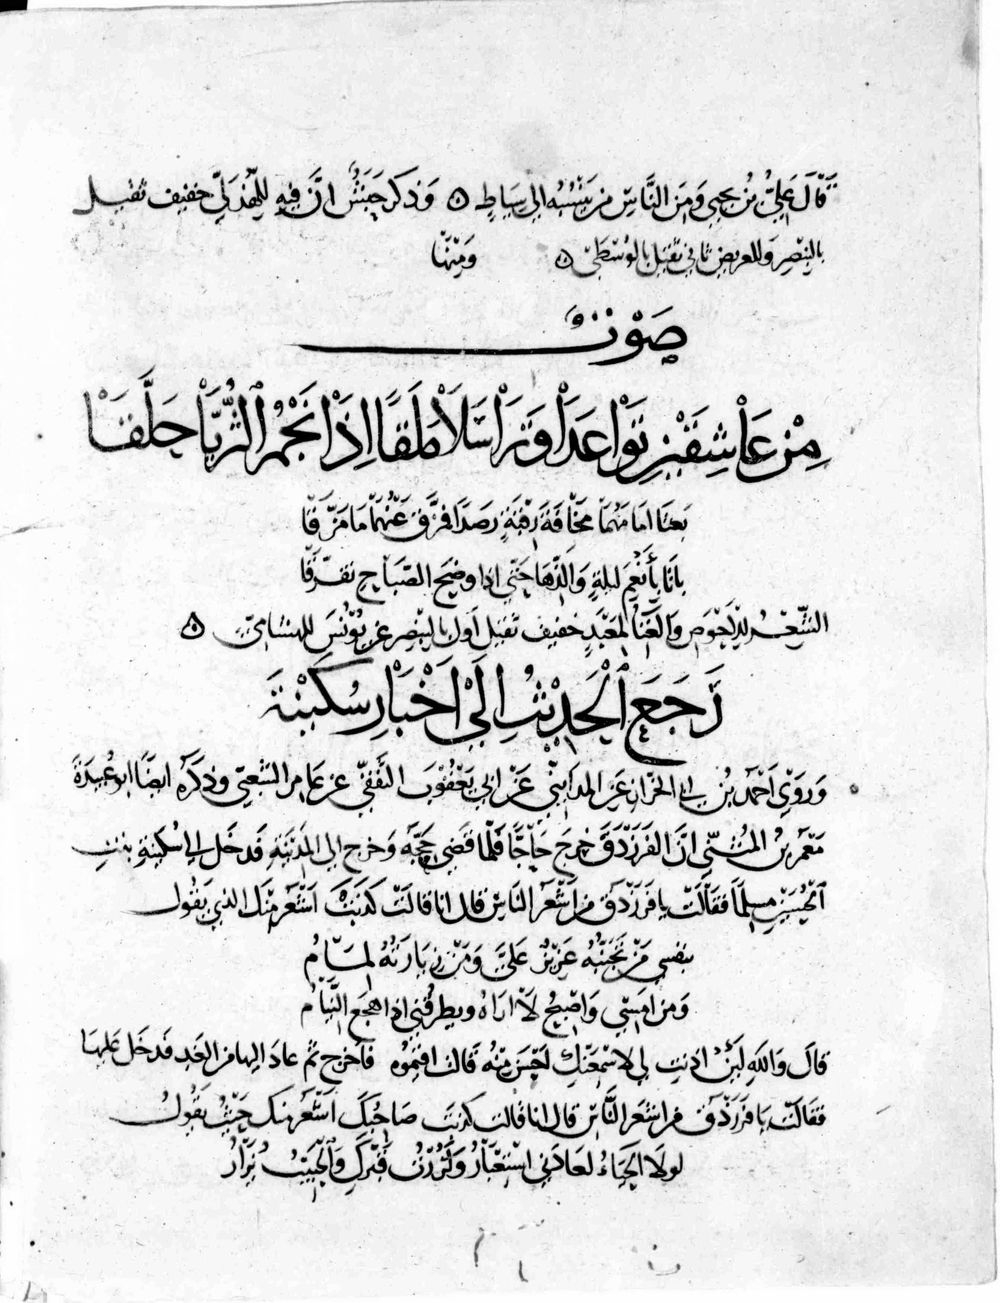 قَالَ عَلِيُّ بْنُ يحيى وَمِنَ النَّاسِ مَن يَنْسُبُهُ الى سِيَاطٍ ۵ وَذَكَرَ حَبَشٌ انَّ فِيهِ لِلْهُذَلِيِّ خفيف ثقيل
بالبِنْصِرِ وَللغريض ثاني ثقيل بالوُسْطَى ۵ وَمِنْهَا
صَوْتٌ
مِنْ عَاشِقَيْنِ تَوَاعَدَا وَتَرَاسَلَا مَلَقًا اِذَا نَجْمُ الثُّرَيَّا حَلَّقَا
بَعَثَا امَامَهُمَا مَخَافَةَ رِقْبَةٍ رَصَدًا فَرَّقَ عَنْهُمَا مَا مَزَّقَا
بَاتَا بِأَنْعَمِ ليلةٍ وَالذِّهَا حَتَّى اذا وضَحَ الصَّبَاحِ تفرَّقَا
الشِّعْرُ لِلْأَحْوَصِ وَالغِنَاءُ لِمَعْبَدٍ خفيف ثقيل أول بالبِنْصِرِ عَن يُونُسَ للهشاميّ ۵
رَجَعَ الْحَدِيْثُ اِلَى اَخْبَارِ سُكَيْنَةَ
وَرَوَى اَحْمَدُ بْنُ الخرّازِ عَنِ المَدَايِنِيِّ عَنْ ابي يَعْقُوْبَ الثَّقَفِيِّ عن عامر الشَّعبيّ وذَكَرَهُ ايضًا ابو عُبَيدَةَ
مَعْمَرُ بْنُ المُثَنَّى انَّ الفَرَزْدَقَ خرجَ حَاجًّا فَلمّا قضى حَجَّهُ وَخرج الى المَدِيْنَةِ فَدَخَلَ الى سُكَيْنَةَ بِنْتِ
الْحُسَيْنِ مسلّماً فَقَالَتْ يا فَرَزْدَقُ مَن اَشْعَرُ النَّاسِ قال انا قَالَتْ كذبتَ اَشْعَرُ مِنْكَ الذي يَقُولُ
بنفسي مَنْ تَجَنُّبُهُ عَزِيْزٌ عَلَيَّ وَمَنْ زِيَارَتُهُ لِمَامُ
وَمَن اُمْسِي وَاُصْبِحُ لَا اَرَاهُ ويطرقني اذا هَجَعَ النِّيَامُ
قَالَ وَاللَّهِ لَئِنْ اَذِنْتِ لي لأسْمِعَنَّكِ احْسَنَ مِنْهُ قَالت اقيموه فاُخرج ثم عادَ اليها من الغد فَدَخَلَ عَلَيها
فقالَتْ يا فَرَزْدَقُ مَن اشْعَرُ النَّاسِ قال انا قالت كذبتَ صَاحِبُكَ اَشْعَرُ منكَ حَيْثُ يَقُولُ
لولا الحَيَاءُ لَعَادَني اسْتِعْبَارُ وَلَزُرْتُ قَبْرَكِ وَالحَبِيْبُ يُزَارُ